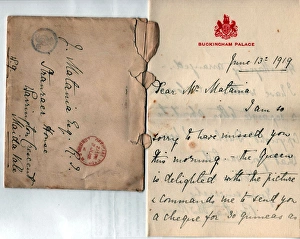 F. Matania Esq. R.I.
Stanraer House
Warrington Crescent
Maida Vale
BUCKINGHAM PALACE
June 13th 1919
Dear Mr Matania
I am so
sorry I have missed you
this morning - the Queen
is delighted with the picture
& commands me to send you
a cheque for 30 guineas as